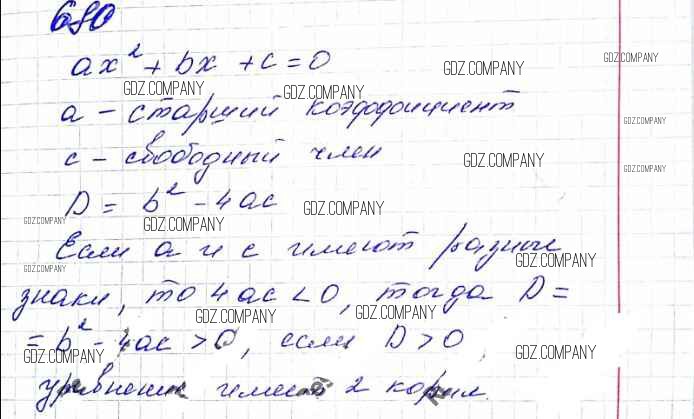 680
ax² + bx + c = 0
GDZ.COMPANY GDZ.COMPANY
GDZ.COMPANY GDZ.COMPANY
a – старший коэффициент
GDZ.COMPANY
c – свободный член
GDZ.COMPANY GDZ.COMPANY
D = b² - 4ac
GDZ.COMPANY
GDZ.COMPANY GDZ.COMPANY
Если a и c имеют разные
GDZ.COMPANY GDZ.COMPANY
знаки, то 4ac < 0, тогда D =
GDZ.COMPANY GDZ.COMPANY
= b² - 4ac > 0, если D > 0,
GDZ.COMPANY GDZ.COMPANY
уравнение имеет 2 корня.